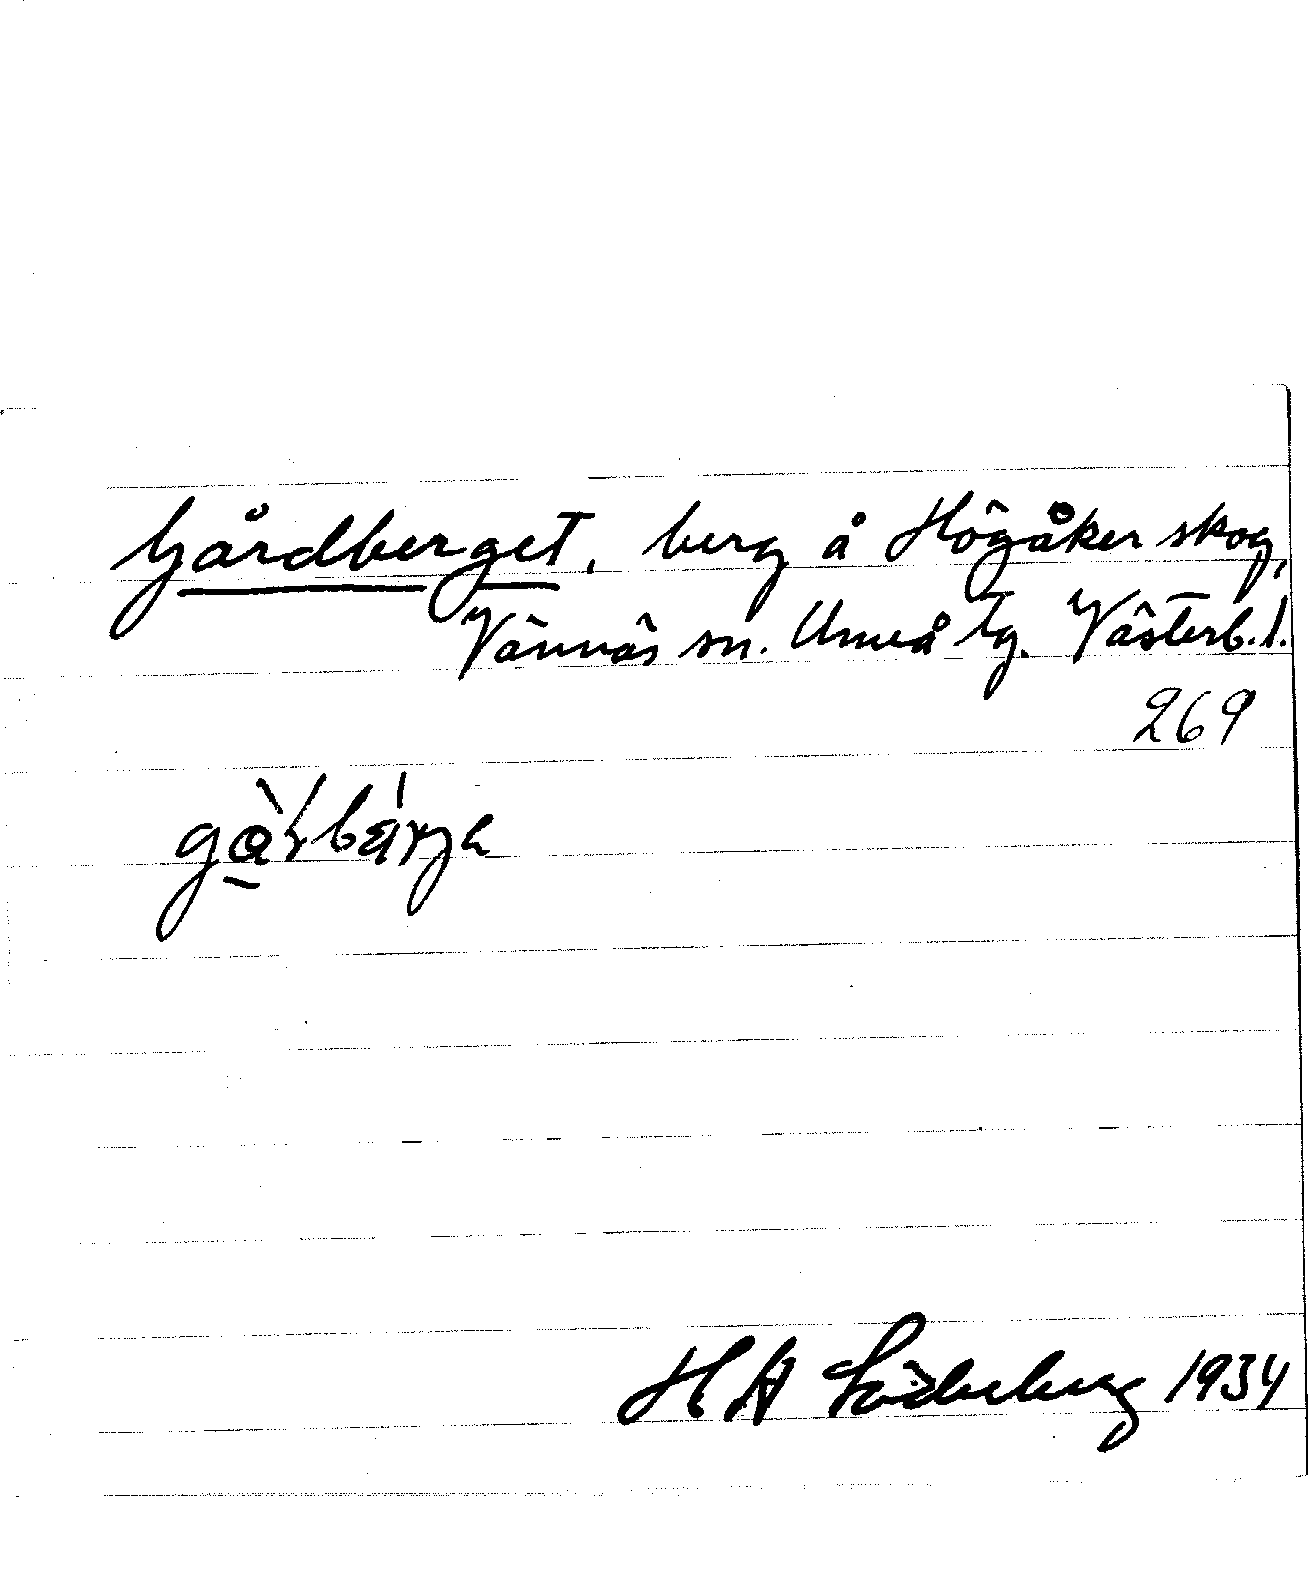 Gårdberget, berg å Högåker skog,
Vännäs sn. Umeå tg. Västerb. l.
269
H A Söderberg 1934